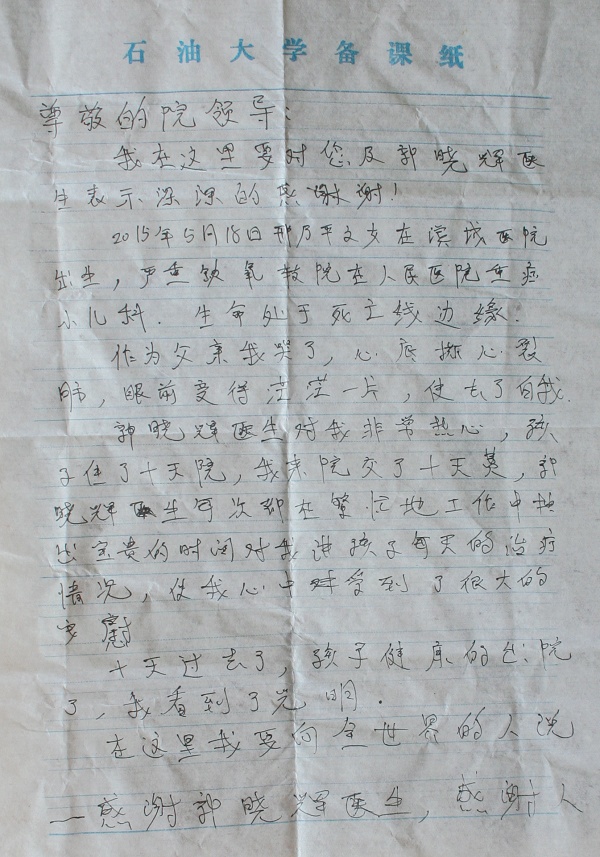 石油大学备课纸
尊敬的院领导:
我在这里要对您及郭晓辉医
生表示深深的感谢谢!
2015年5月18日邢乃平之女在滨城医院
出生,严重缺氧 院在人民医院重症
小儿科.生命处于死亡线边缘.
作为父亲我哭了,心底撕心裂
肺,眼前变得茫茫一片,使去了自我.
郭晓辉医生对我非常热心,孩
子住了十天院,我来院交了十天 ,郭
晓辉医生每次都在繁忙地工作中抽
出宝贵的时间对我讲孩子每天的治疗
情况,使我心中 受到了很大的
安慰
十天过去了,孩子健康的出院
了,我看到了光明.
在这里我要向全世界的人说
—感谢郭晓辉医生,感谢人